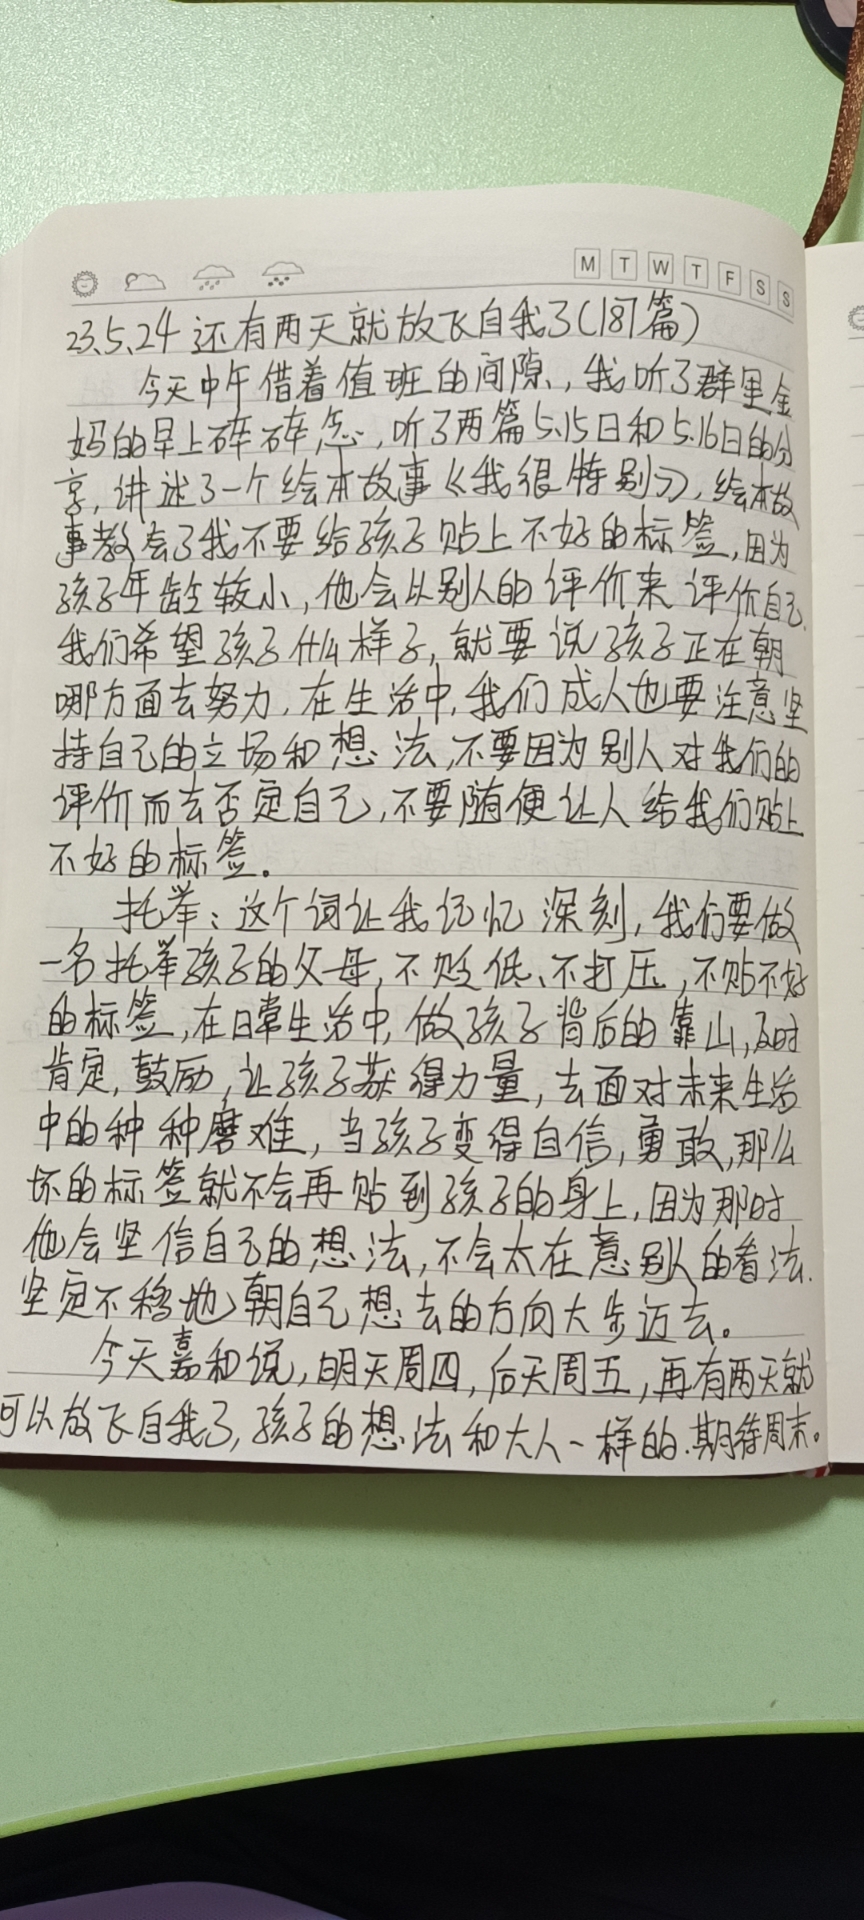 M T W T F S S
23.5.24 还有两天就放飞自我了(187篇)
今天中午借着值班的间隙，我听了群里金
妈的早上碎碎念，听了两篇5.15日和5.16日的分
享，讲述了一个绘本故事《我很特别》，绘本故
事教会了我不要给孩子贴上不好的标签，因为
孩子年龄较小，他会以别人的评价来评价自己.
我们希望孩子什么样子，就要说孩子正在朝
哪方面去努力，在生活中，我们成人也要注意坚
持自己的立场和想法，不要因为别人对我们的
评价而去否定自己，不要随便让人给我们贴上
不好的标签。
托举：这个词让我记忆深刻，我们要做
一名托举孩子的父母，不贬低、不打压，不贴不好
的标签，在日常生活中，做孩子背后的靠山，及时
肯定，鼓励，让孩子获得力量，去面对未来生活
中的种种磨难，当孩子变得自信，勇敢，那么
坏的标签就不会再贴到孩子的身上，因为那时
他会坚信自己的想法，不会太在意别人的看法.
坚定不移地朝自己想去的方向大步迈去。
今天嘉和说，明天周四，后天周五，再有两天就
可以放飞自我了，孩子的想法和大人一样的.期待周末。